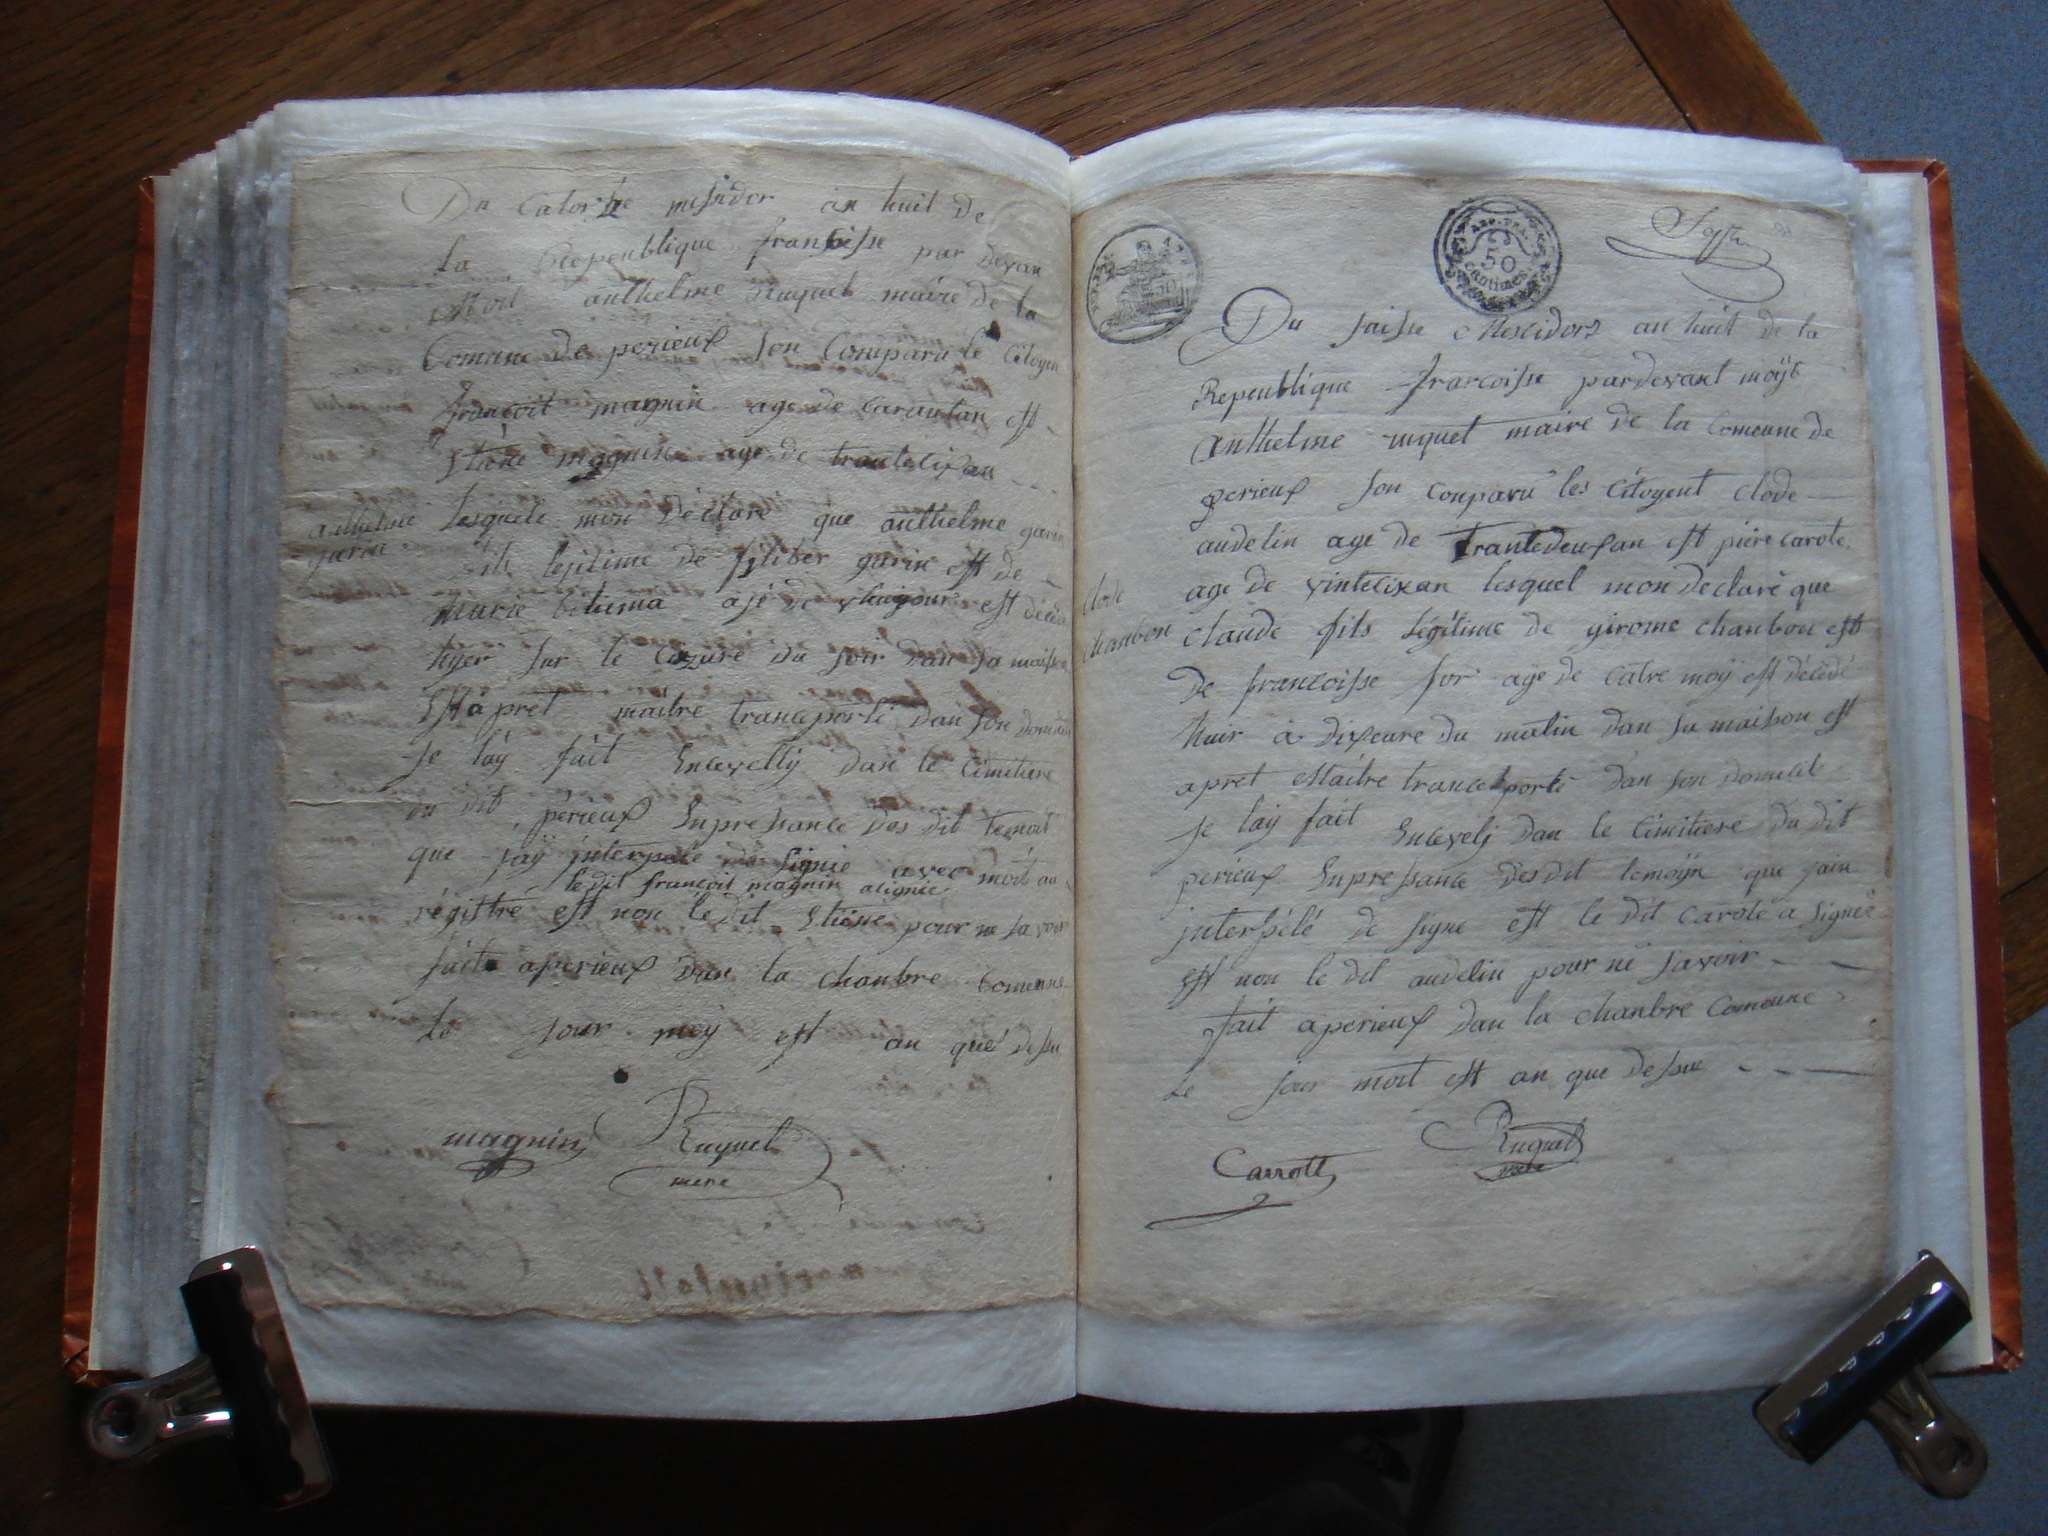 Du Catorze mesidor an huit de
la Repeublique franссisse par devan
moit anthelme Ruquet maire de la
Comune de perieux son Comparu le Citoyen
françoit magnin age de carantan est
Etiène magnin age de trantesixan
anthelme
garin
lesquele mon déclaré que anthelme garin
fils lejitime de filiber garin est de
Marie age de est décédé
hyer sur le du soir dan sa maison
Est apret maitre tranceporté dan son domicile
Je lay fait Encevelly dan le Cimitiere
du dit perieux Enpressance des dit temoit
que jaÿ interpelé de signie avec moit au
le dit françoit magnin a signie
régittré est non le dit Etiène pour ne savoir
fait aperieux dan la chanbre Comune
le jour moy est an que desu
magnin Ruquet
mere
AN. RA.
50
Centimes
Du saisse Messidors an huit de la
Republique francoisse pardevant moÿt
Anthelme ruquet maire de la Comeune de
perieux son conparu les Citoyent Clode
audelin age de trantedeuxan est piere carote
age de vintesixan lesquel mon declaré que
Clode
chanbon
Claude fils légitime de girome chanbon est
De francoisse for age de catre moÿ est décédé
huir à dixeure du matin dan sa maison est
apret mettre tranceporté dan son domicile
Je laÿ fait Encevelj dan le Cimitiere du dit
perieux Enpressance desdit temoÿn que jain
interpélé de signe est le dit carote a signée
est non le dit audelin pour ne savoir
fait aperieux dan la chanbre Comeune
Le jour moit est an que desue
Carrott Ruquet
mere